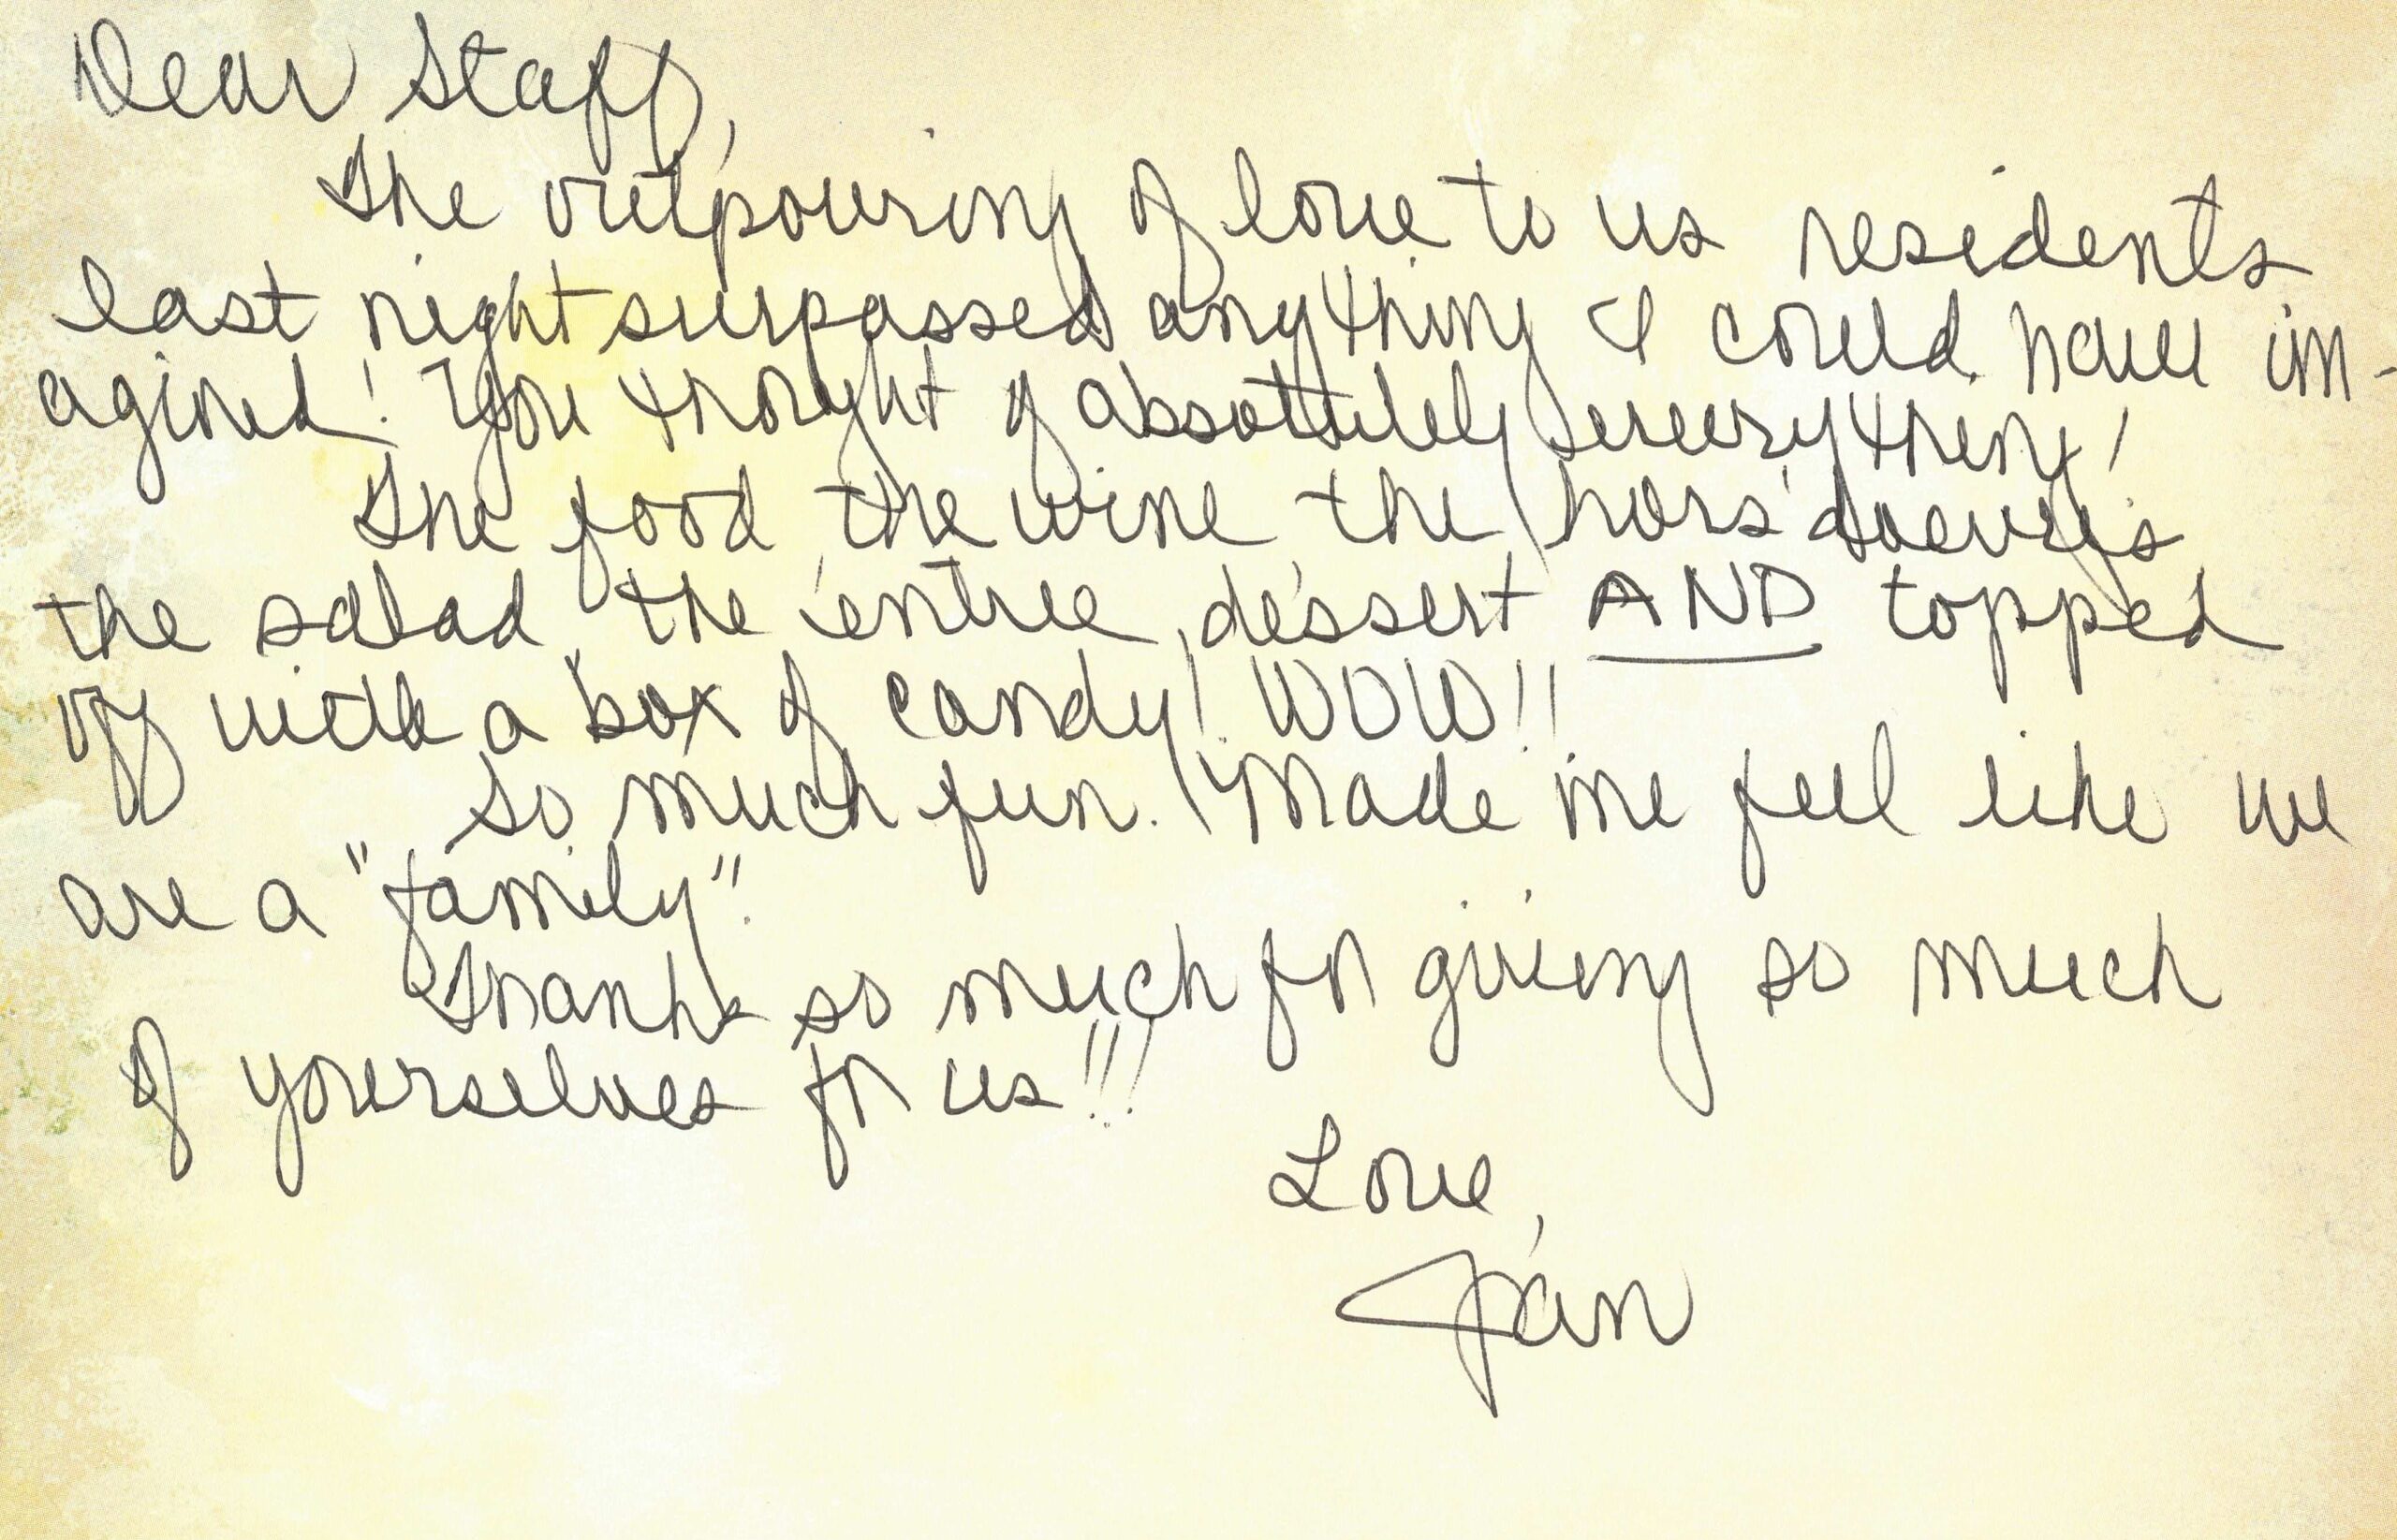 Dear Staff,
The outpouring of love to us residents
last night surpassed anything I could have im-
agined! You thought of absolutely everything!
The food, the wine, the hors d'oeuvres
the salad, the entree, dessert AND topped
off with a box of candy! WOW!!
So much fun. Made me feel like we
are a "family".
Thanks so much for giving so much
of yourselves for us!!!
Love,
Jan